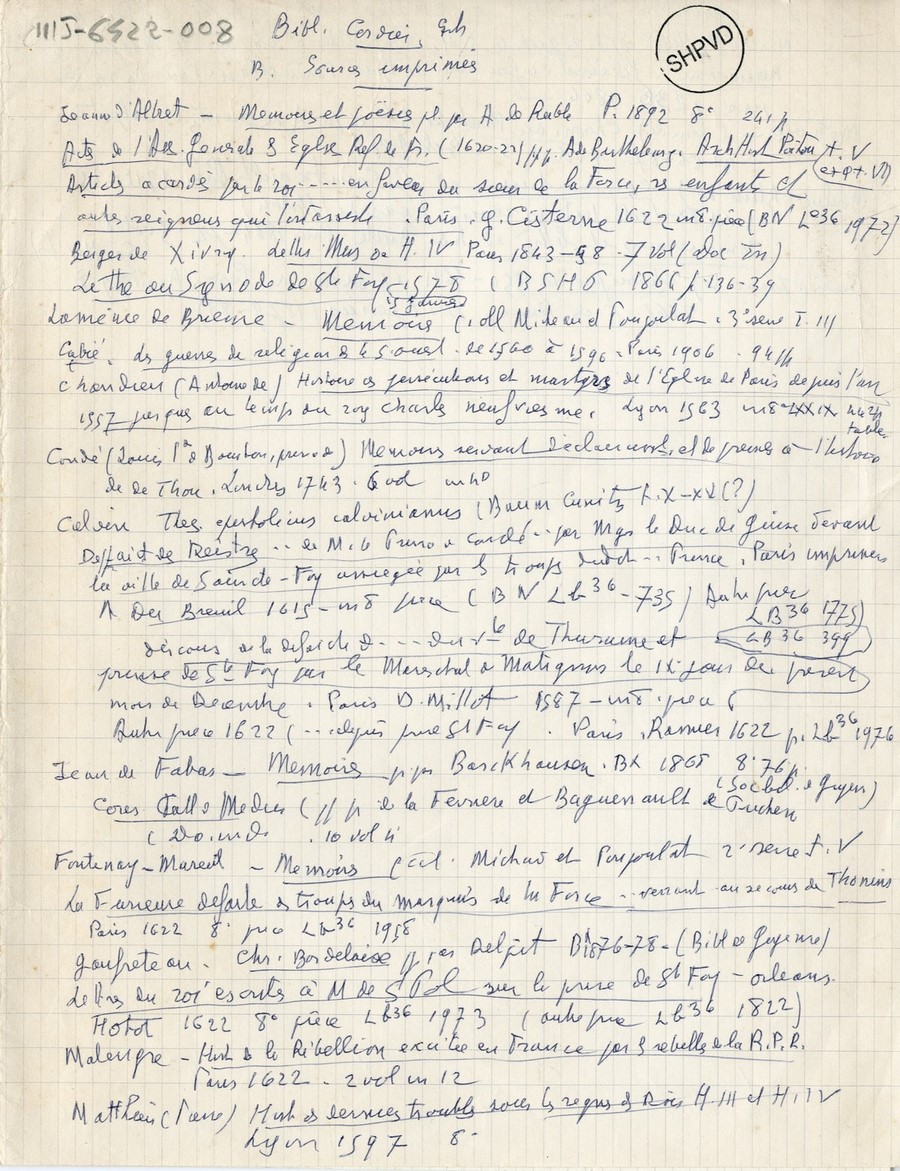 IIIJ-6522-008
SHPVD
Bibl. Cordier, Gh
B. Sources imprimées
Jeanne d'Albret – Memoires et poésies pl. par A de Ruble P. 1892 8° 241 p
Actes de l'Ass. Generale & Eglise Ref. de Fr. (1620-22) pp. A de Barthelemy. Arch Hist Poitou t. V
(et t. VI)
Articles accordés par le roi ---- en faveur du sieur de la Force, ses enfants et
autres seigneurs qui l'ont assisté. Paris. G. Cisterne 1622 in 8° pièce (BN Lb 36 1972)
Berger de Xivrey. Lettres Miss de H. IV Paris 1843-58 - 7 vol (doc In)
Lettre au Synode de Ste Foy - 1578 (BSHP 1866 p. 136-39
Lomenie de Brienne – Memoires (Coll Michaud Poujoulat. 3e serie T. III
Cabié. Les guerres de religion ds le S. ouest. de 1560 à 1590. Paris 1906. 94 pp
Chandieu (Antoine de) Histoire des persecutions et martyrs de l'Eglise de Paris depuis l'an
1557 jusques au temps du roy Charles neufviesme. Lyon 1563 in 8° LXXIX 442 p
tables
Condé (Louis Ier de Bourbon, prince de) Memoires servant d'eclaircissmt. et de preuves à l'histoire
de de Thou. Londres 1743. 6 vol in 4°
Calvin Thes. epistolicus calvinianus (Baum Cunitz t. X-XX (?)
Deffaite de -- de M. le Prince de Condé -- par Mgr le Duc de Guise devant
la ville de Saincte-Foy assiegée par les troupes dudit -- Prince. Paris imprimerie
A Du Breuil 1615 – in 8 pièce (BN Lb 36 - 735) Autre pièce
LB 36 1775)
LB 36 399
discours de la defaicte d. --- du vte de Thuraine et
prinse de Ste Foy par le Mareschal de Matignon le IXe jour du présent
mois de Decembre. Paris D. Millot 1587 – in 8. pièce
Autre pièce 1622 (-- depuis prise St Foy. Paris. Rammier 1622 p. Lb 36 1976
Jean de Fabas – Memoires pp par Barckhausen. BX 1868 8° 76 p
(Soc bibl. de Guyen)
Cores Cath de Medicis (pp p. de la Ferriere et Baguenault de Puchesse
(Do. ind. 10 vol 4°
Fontenay-Mareuil – Memoires (Coll. Michaud et Poujoulat 2e serie t. V
La Furieuse defaite des troupes du marquis de la Force -- venant au secours de Thonins
Paris 1622 8° pièce Lb 36 1958
Gaufreteau. Chr. Bordeloise pp par Delpit BX 1876-78 – (Bibl de Guyenne)
Lettres du roi escrites à M de St Pol sur la prise de St Foy – orleans.
Hotot 1622 8° pièce Lb 36 1973 (autre pièce Lb 36 1822)
Malingre – Hist de la Rébellion excitée en France par les rebelles de la R.P.R.
Paris 1622. 2 vol in 12
Matthieu (Pierre) Hist des derniers troubles sous les regnes des Rois H. III et H. IV
Lyon 1597 8°